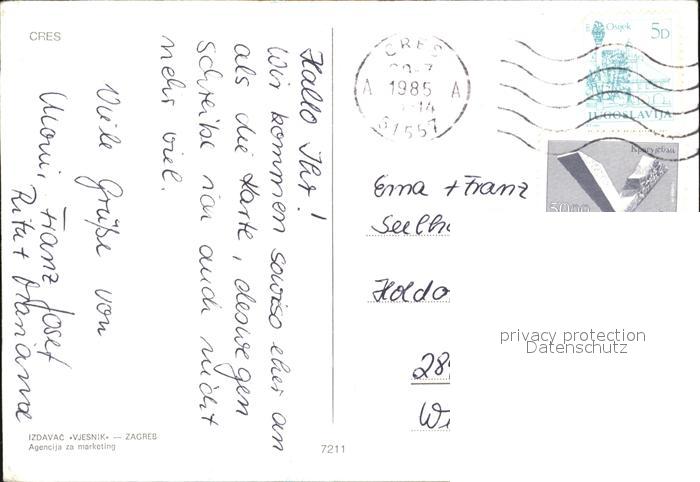 CRES
Hallo Ihr!
Wir kommen sowieso eher an
als die Karte, deswegen
schreibe ich auch nicht
mehr viel.
Viele Grüße von
Moni, Franz Josef
Rita + Marianne
IZDAVAČ »VJESNIK« — ZAGREB
Agencija za marketing
7211
CRES
1985
A A
-14
51557
Osijek
5D
JUGOSLAVIJA
Крагујевац
50
Erna + Franz
Holdo
28
privacy protection
Datenschutz